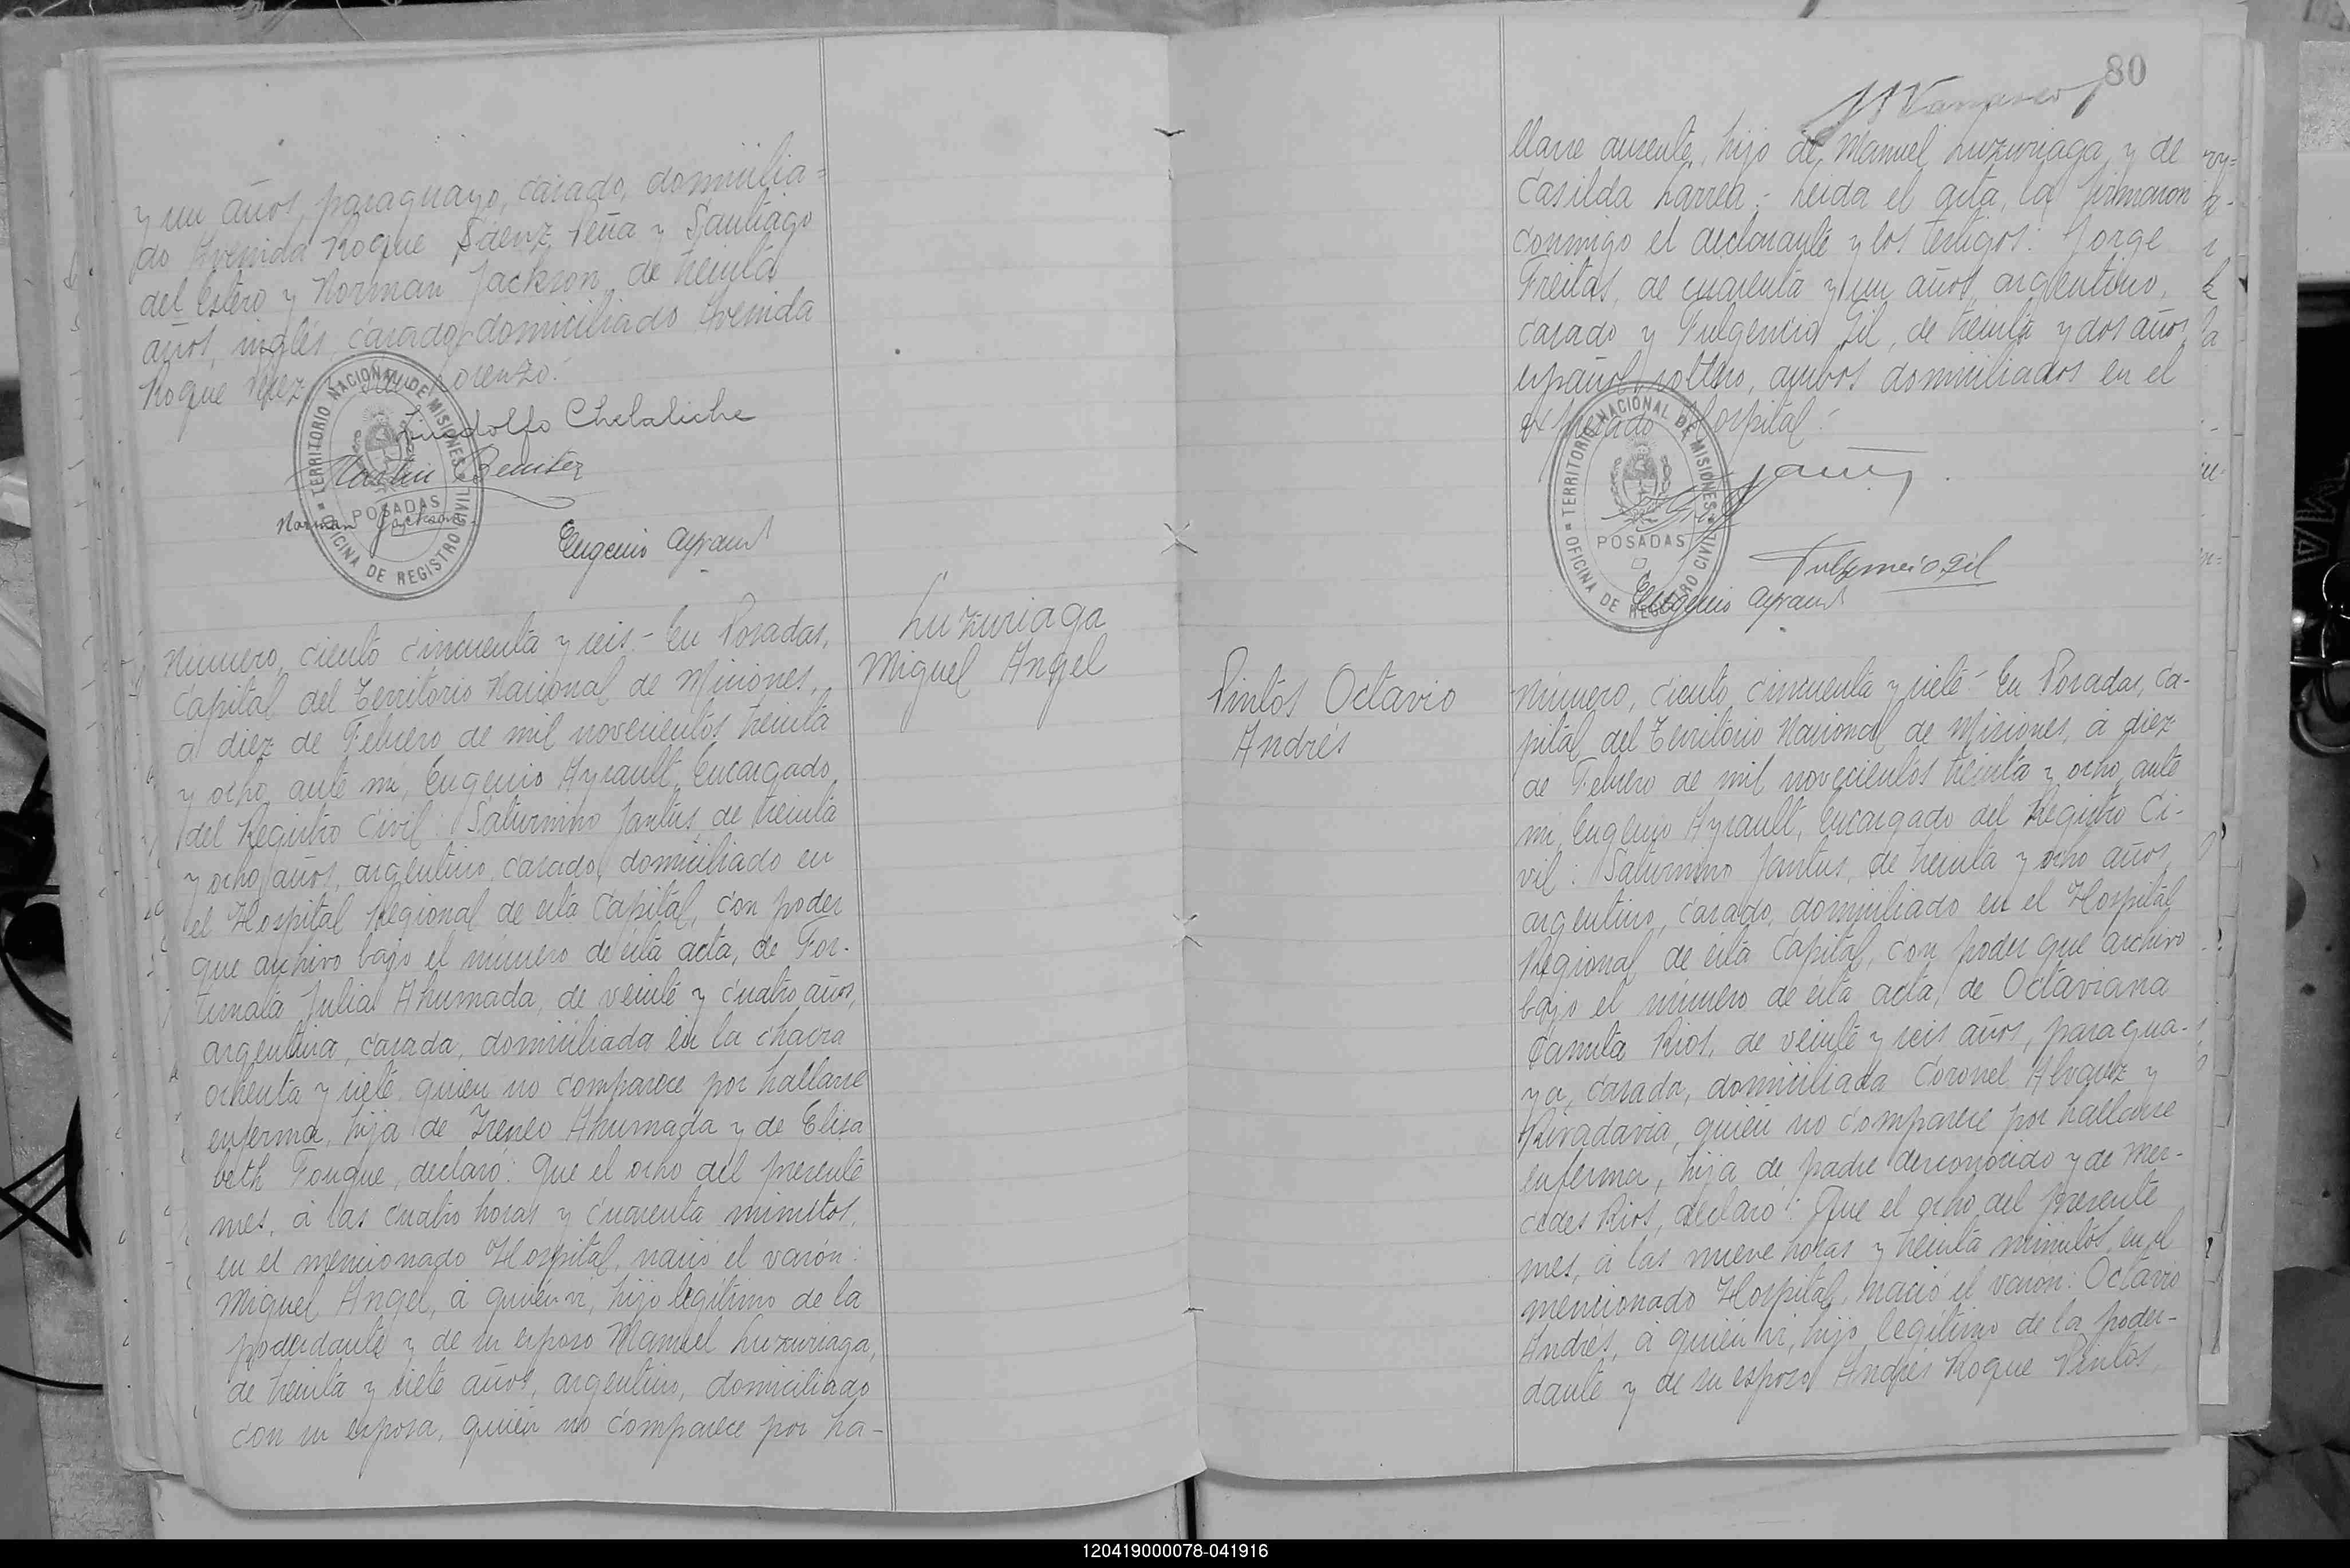 y un años, paraguayo, casado, domicilia=
do Avenida Roque Sáenz Peña y Santiago
del Estero y Norman Jackson, de treinta
años, inglés, casado, domiciliado Avenida
Roque Perez y San Lorenzo.
TERRITORIO NACIONAL DE MISIONES
POSADAS
OFICINA DE REGISTRO CIVIL
Lindolfo Chelaliche
Martin Benitez
Norman Jackson
Eugenio Ayrault
Número, ciento cincuenta y seis - En Posadas,
Capital del Territorio Nacional de Misiones,
á diez de Febrero de mil novecientos treinta
y ocho, ante mí, Eugenio Ayrault, Encargado
del Registro Civil: Saturnino Jantus, de treinta
y ocho años, argentino, casado, domiciliado en
el Hospital Regional de esta Capital, con poder
que archivo bajo el número de esta acta, de For-
tunata Julia Ahumada, de veinte y cuatro años,
argentina, casada, domiciliada en la chacra
ochenta y siete, quien no comparece por hallarse
enferma, hija de Ireneo Ahumada y de Elisa
beth Fouque, declaró: Que el ocho del presente
mes, á las cuatro horas y cuarenta minutos,
en el mencionado Hospital, nació el varón:
Miguel Angel, á quién ví, hijo legítimo de la
poderdante y de su esposo Manuel Luzuriaga,
de treinta y siete años, argentino, domiciliado
con su esposa, quién no comparece por ha-
Luzuriaga
Miguel Angel
80
llarse ausente, hijo de Manuel Luzuriaga y de
Casilda Larrea.- Leida el acta, la firmaron
conmigo el declarante y los testigos: Jorge
Freitas, de cuarenta y un años, argentino,
casado y Fulgencio Gil, de treinta y dos años,
español, soltero, ambos domiciliados en el
expresado Hospital.
TERRITORIO NACIONAL DE MISIONES
POSADAS
OFICINA DE REGISTRO CIVIL
Fulgencio Gil
Eugenio Ayrault
Pintos Octavio
Andrés
Número, ciento cincuenta y siete - En Posadas, Ca-
pital del Territorio Nacional de Misiones, á diez
de Febrero de mil novecientos treinta y ocho, ante
mí, Eugenio Ayrault, Encargado del Registro Ci-
vil: Saturnino Jantus, de treinta y ocho años,
argentino, casado, domiciliado en el Hospital
Regional de esta Capital, con poder que archivo
bajo el número de esta acta, de Octaviana
Canuta Rios, de veinte y seis años, paragua-
ya, casada, domiciliada Coronel Alvarez y
Rivadavia, quién no comparece por hallarse
enferma, hija de padre desconocido y de Mer-
cedes Rios, declaró: Que el ocho del presente
mes, á las nueve horas y treinta minutos, en el
mencionado Hospital, nació el varón: Octavio
Andrés, á quién ví, hijo legítimo de la poder-
dante y de su esposo Andrés Roque Pintos,
120419000078-041916